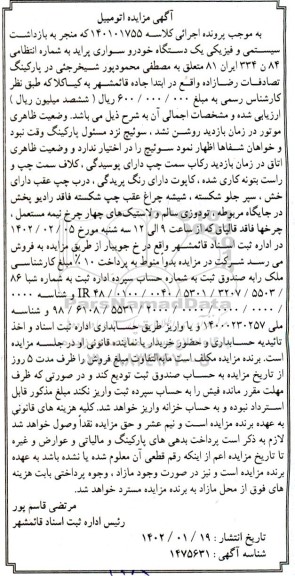 آگهی مزایده اتومبیل
به موجب پرونده اجرائی کلاسه ۱۴۰۱۰۱۷۵۵ که منجر به بازداشت
سیستمی و فیزیکی یک دستگاه خودرو سواری پراید به شماره انتظامی
۸۴ ن ۳۳۴ ایران ۸۱ متعلق به مصطفی محمودپور شیخرجئی در پارکینگ
تصادفات رضازاده واقع در ابتدا جاده قائمشهر به کیاکلا که طبق نظر
کارشناس رسمی به مبلغ ۶۰۰/۰۰۰/۰۰۰ ریال (ششصد میلیون ریال)
ارزیابی شده و مشخصات اجمالی آن به شرح ذیل می باشد. وضعیت ظاهری
موتور در زمان بازدید روشن نشد، سوئیچ نزد مسئول پارکینگ وقت نبود
و خواهان شفاها اظهار نمود سوئیچ را در اختیار ندارد و وضعیت ظاهری
اتاق در زمان بازدید رکاب سمت چپ دارای پوسیدگی، گلاف سمت چپ و
راست بتونه کاری شده، کاپوت دارای رنگ پریدگی، درب چپ عقب دارای
خش، سپر جلو شکسته، شیشه چراغ عقب چپ شکسته فاقد رادیو پخش
در جایگاه مربوطه، تودوزی سالم و لاستیک‌های چهار چرخ نیمه مستعمل،
چرخها فاقد قالپاق که از ساعت ۹ الی ۱۲ سه شنبه مورخ ۱۴۰۲/۰۲/۰۵
در اداره ثبت اسناد قائمشهر واقع در خ جویبار از طریق مزایده به فروش
می رسد شرکت در مزایده بدوا منوط به پرداخت ۱۰٪ مبلغ کارشناسی
ملک را به صندوق ثبت به شماره حساب سپرده اداره ثبت به شماره شبا ۸۶
IR ۴۸/۰۱۰۰/۰۰۴۰/۵۳۰۱/۳۲۷۷/۵۵۰۳/ و شناسه ۰۰۰۰
/۰۰۰۰/۰۰۰۰/۲۰۰۰/۵۵۳۱/۶۱۰۸/۹۸ و شناسه
ملی ۱۴۰۰۰۲۳۰۲۵۷ و یا واریز طریق حسابداری اداره ثبت اسناد و اخذ
تائیدیه حسابداری و حضور خریدار یا نماینده قانونی او در جلسه مزایده
است. برنده مزایده مکلف است مابه‌التفاوت مبلغ فروش را ظرف مدت ۵ روز
از تاریخ مزایده به حساب صندوق ثبت تودیع کند و در صورتی که ظرف
مهلت مقرر مانده فیش را به حساب سپرده ثبت واریز نکند مبلغ مذکور قابل
استرداد نبوده و به حساب خزانه واریز خواهد شد. کلیه هزینه های قانونی
به عهده برنده مزایده است و نیم عشر و حق مزایده نقداً وصول خواهد شد
لازم به ذکر است پرداخت بدهی های پارکینگ و مالیاتی و عوارض و غیره
تا تاریخ مزایده اعم از اینکه رقم قطعی آن معلوم شده یا نشده باشد به عهده
برنده مزایده است و نیز در صورت وجود مازاد، وجوه پرداختی بابت هزینه
های فوق از محل مازاد به برنده مزایده مسترد خواهد شد.
مرتضی قاسم پور
رئیس اداره ثبت اسناد قائمشهر
تاریخ انتشار: ۱۴۰۲/۰۱/۱۹
شناسه آگهی: ۱۴۷۵۶۳۱